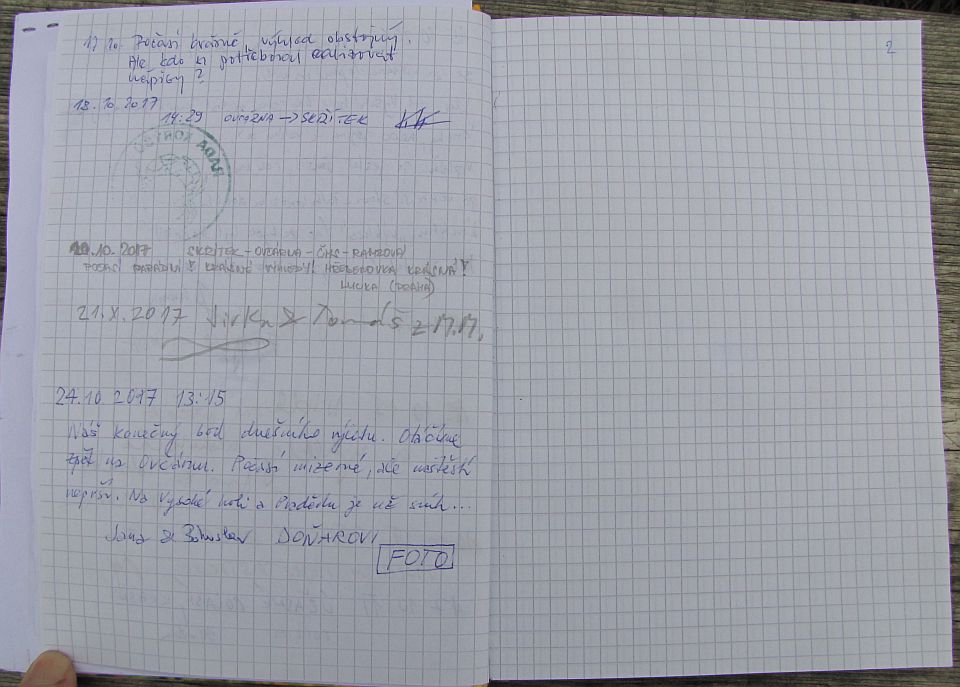 17.10. Počasí krásné, výhled obstojný.
Ale kdo si potřeboval
nápisy?
18.10.2017
14:29 OVČÁRNA → SKŘÍTEK
19.10.2017 SKŘÍTEK - OVČÁRNA - ČHS - RAMZOVÁ
POČASÍ PARÁDNÍ! KRÁSNÉ VÝHLEDY! HŘEBENOVKA KRÁSNÁ!
LUCKA (PRAHA)
21.X.2017 Jirka & Tomáš z M.M.
24.10 2017 13:15
Náš konečný bod dnešního výletu. Otáčíme
zpět na Ovčárnu. Počasí mizerné, ale naštěstí
neprší. Na Vysoké holi a Pradědu je už sníh...
Jana & Bohuslav DOŇAROVI
FOTO
2